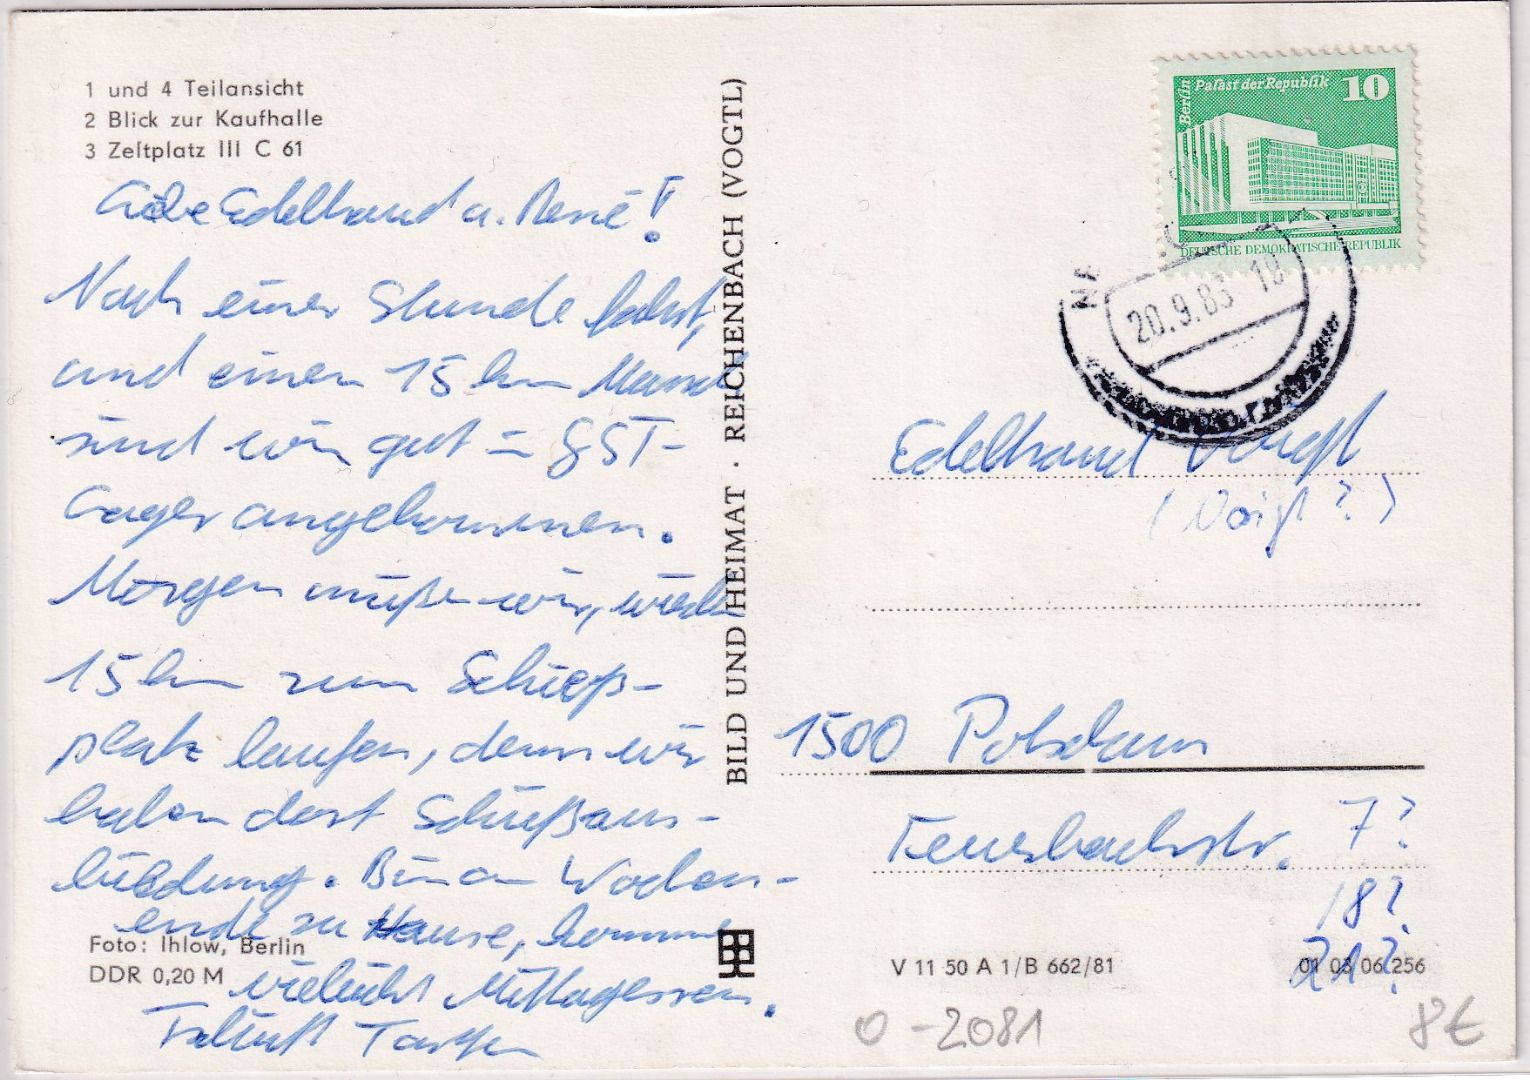 1 und 4 Teilansicht
2 Blick zur Kaufhalle
3 Zeltplatz III C 61
Liebe Edeltraud u. René!
Nach einer Stunde Fahrt,
und einem 15 km Marsch
sind wir gut i. GST-
Lager angekommen.
Morgen müßen wir, wieder
15 km zum Schieß-
platz laufen, denn wir
haben dort Schießaus-
bildung. Bin am Wochen-
ende zu Hause, komme
vielleicht Mittagessen.
Torsten
Foto: Ihlow, Berlin
DDR 0,20 M
BILD UND HEIMAT · REICHENBACH (VOGTL)
Berlin
Palast der Republik
10
DEUTSCHE DEMOKRATISCHE REPUBLIK
20.9.83-18
Edeltraud Voigt
(Voigt?)
1500 Potsdam
Feuerbachstr. 7?
18?
21?
V 11 50 A 1/B 662/81
01 03 06 256
0-2081
8€